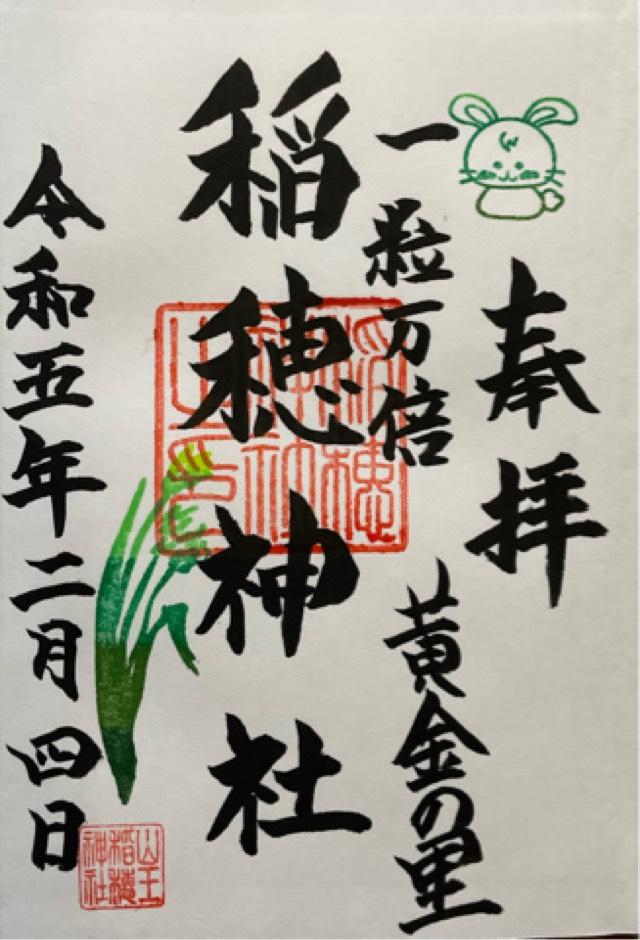 奉拝
一粒万倍
黄金の里
稲穂神社
稲穂神社之印
令和五年二月四日
山王稲穂神社